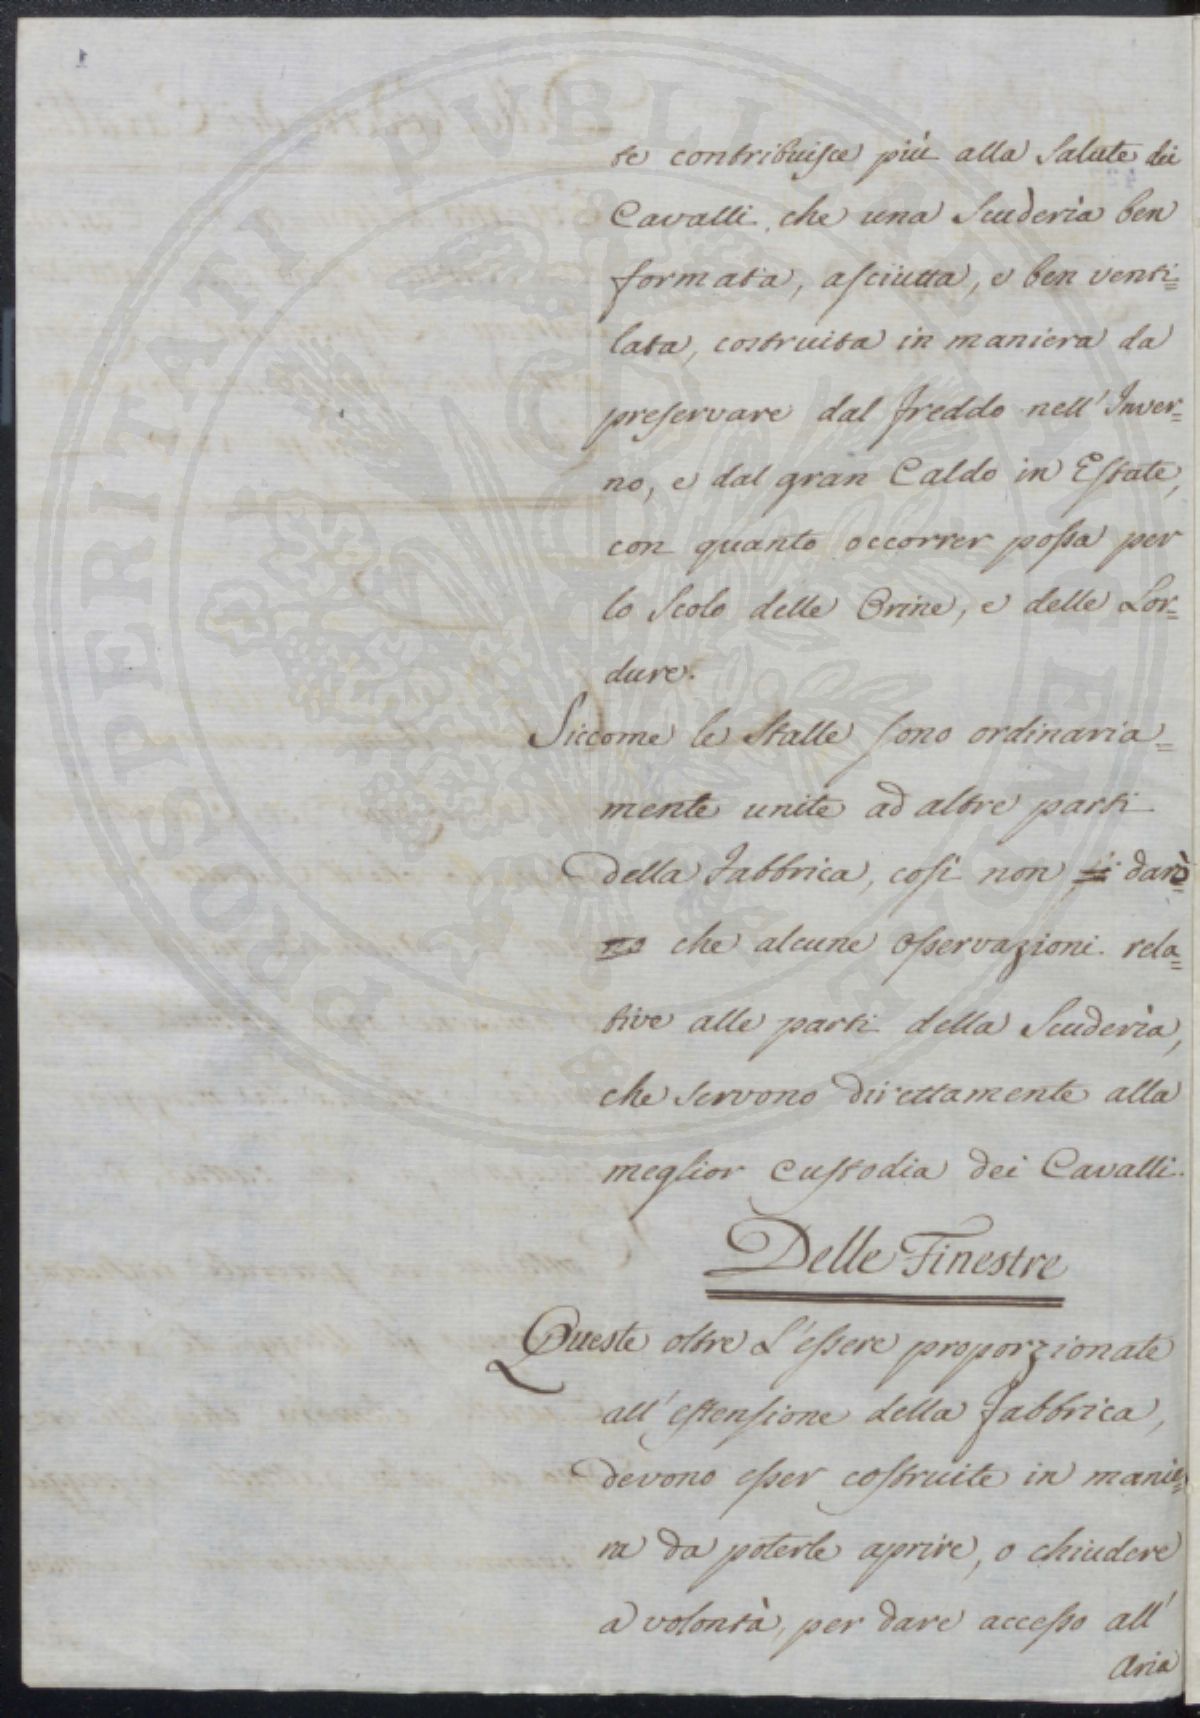 te contribuisce più alla Salute dei
Cavalli, che una Scuderìa ben
formata, asciutta, e ben venti=
lata, costruita in maniera da
preservare dal freddo nell'Inver=
no, e dal gran Caldo in Estate,
con quanto occorrer possa per
lo Scolo delle Orine, e delle Lor=
dure.
Siccome le Stalle sono ordinaria=
mente unite ad altre parti
della Fabbrica, così non si darò
no che alcune Osservazioni rela=
tive alle parti della Scuderìa,
che servono direttamente alla
meglior Custodia dei Cavalli.
Delle Finestre
Queste oltre L'essere proporzionate
all'estensione della Fabbrica,
devono esser costruite in manie=
ra da poterle aprire, o chiudere
a volontà, per dare accesso all'
Aria
PROSPERITATI PUBLICAE AUGENDAE